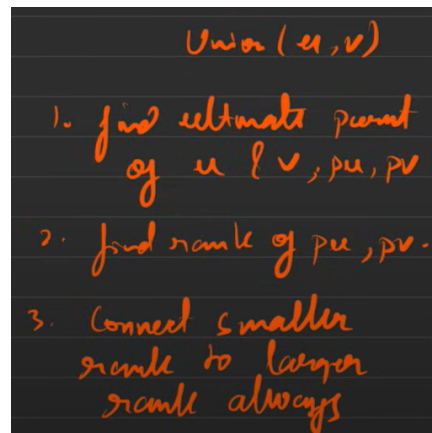 Union(u, v)
1. find ultimate parent
of u & v, pu, pv
2. find rank of pu, pv.
3. Connect smaller
rank to larger
rank always